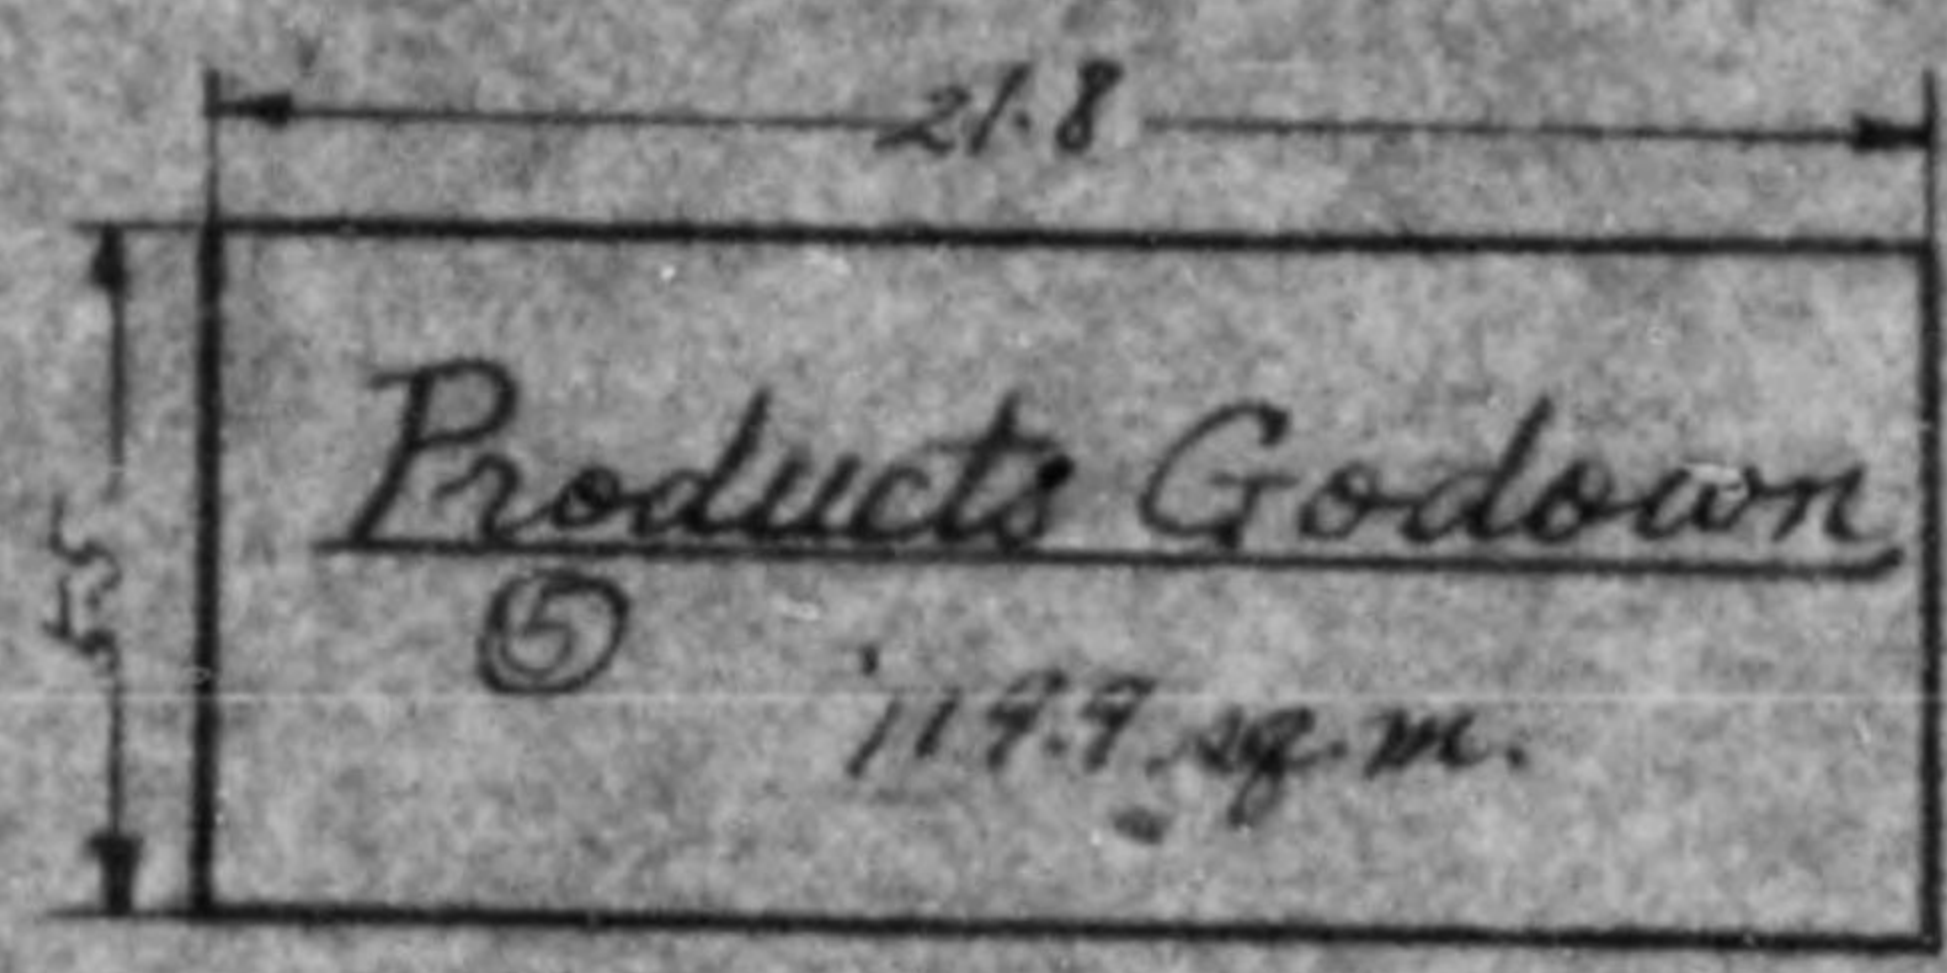 21.8
5.5
Products Godown
5
119.9 sq. m.